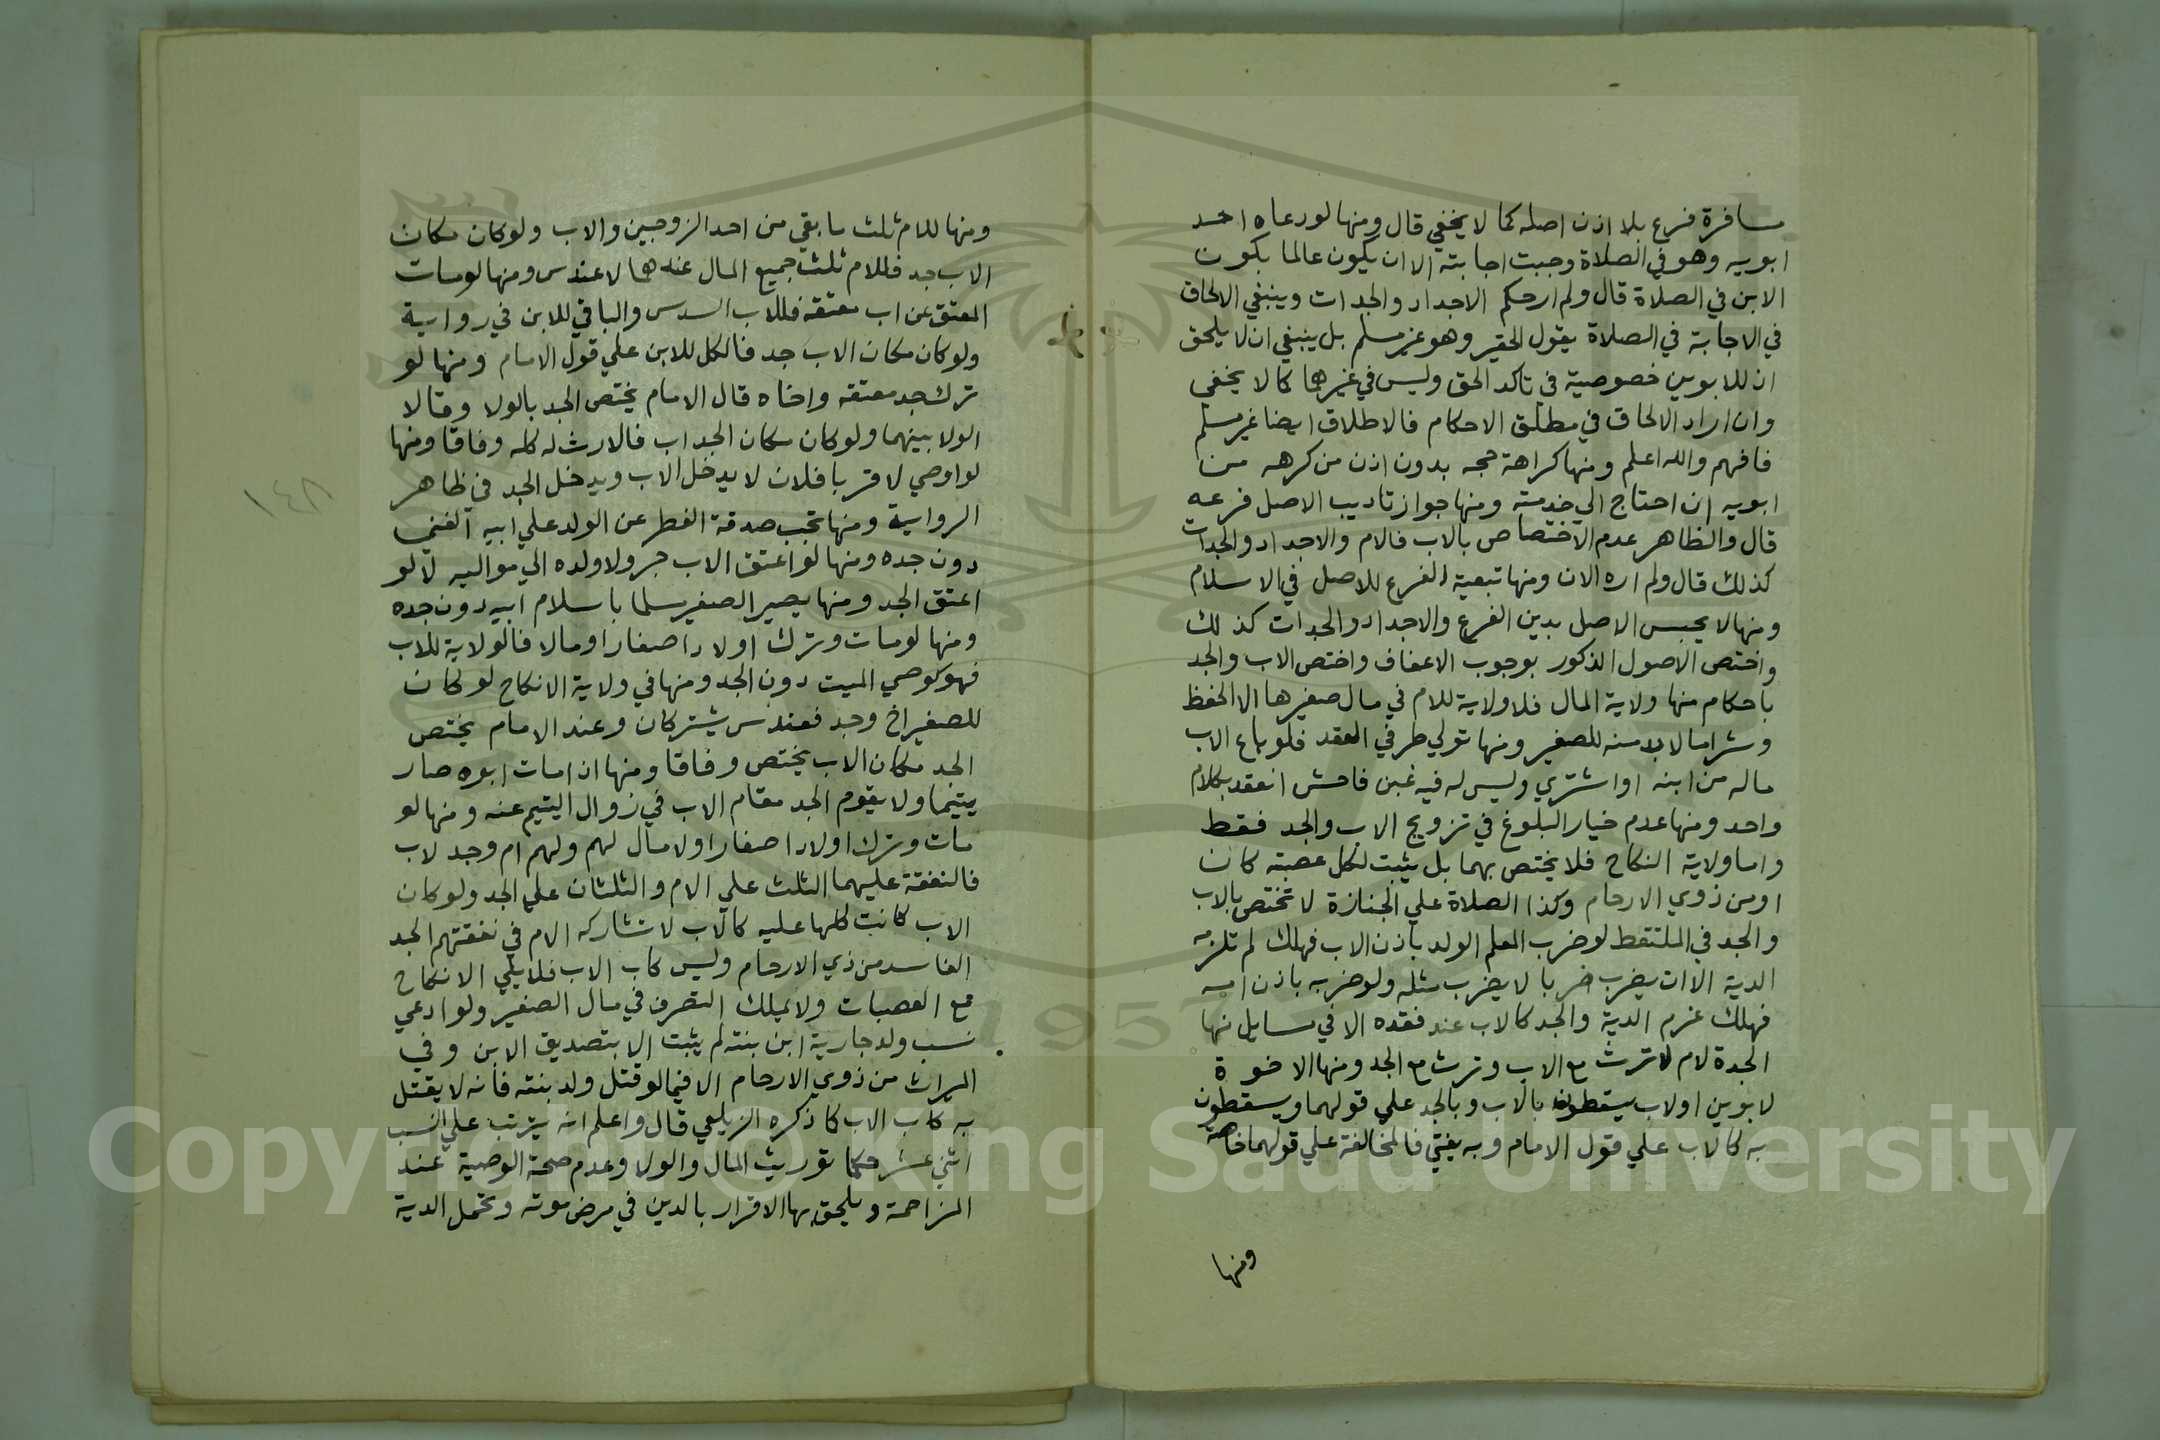 مسافرة فرع بلا اذن اصله كما لا يخفي قال ومنها لو دعاه احد
ابويه وهو في الصلاة وجبت اجابته الا ان يكون عالما بكون
الابن في الصلاة قال ولم ار حكم الاجداد والجدات وينبغي الالحاق
في الاجابة في الصلاة يقول الحقير وهو غير مسلم بل ينبغي ان لا يلحق
ان للابوين خصوصية في تاكد الحق وليس في غيرها كما لا يخفي
وان اراد الالحاق في مطلق الاحكام فالاطلاق ايضا غير مسلم
فافهم والله اعلم ومنها كراهة حجه بدون اذن من كرهه من
ابويه ان احتاج الي خدمته ومنها جواز تاديب الاصل فرعه
قال والظاهر عدم الاختصاص بالاب فالام والاجداد والجدات
كذلك قال ولم اره الان ومنها تبعية الفرع للاصل في الاسلام
ومنها لا يحبس الاصل بدين الفرع والاجداد والجدات كذلك
واختص الاصول الذكور بوجوب الاعفاف واختص الاب والجد
باحكام منها ولاية المال فلا ولاية للام في مال صغيرها الا الحفظ
وشرا ما لا بد منه للصغير ومنها تولي طرفي العقد فلو باع الاب
ماله من ابنه او اشتري وليس له فيه غبن فاحش انعقد بكلام
واحد ومنها عدم خيار البلوغ في تزويج الاب والجد فقط
واما ولاية النكاح فلا يختص بهما بل يثبت لكل عصبته كان
او من ذوي الارحام وكذا الصلاة علي الجنازة لا تختص بالاب
والجد في الملتقط لو ضرب المعلم الولد باذن الاب فهلك لم تلزمه
الدية الا ان يضرب ضربا لا يضرب مثله ولو ضربه باذن ابيه
فهلك غرم الدية والجد كالاب عند فقده الا في مسايل منها
الجدة لام لا ترث مع الاب وترث مع الجد ومنها الاخوة
لابوين او لاب يسقطون بالاب وبالجد علي قولهما ويسقطون
به كالاب علي قول الامام وبه يفتي فالمخالفة علي قولهما خاصة
ومنها
ومنها للام ثلث ما بقي من احد الزوجين والاب ولو كان مكان
الاب جد فللام ثلث جميع المال عندهما لا عند س ومنها لو مات
المعتق عن اب معتقه فللاب السدس والباقي للابن في رواية
ولو كان مكان الاب جد فالكل للابن علي قول الامام ومنها لو
ترك جد معتقه واخاه قال الامام يختص الجد بالولا وقالا
الولا بينهما ولو كان مكان الجد اب فالارث له كله وفاقا ومنها
لو اوصي لاقربا فلان لا يدخل الاب ويدخل الجد في ظاهر
الرواية ومنها تجب صدقة الفطر عن الولد علي ابيه الغني
دون جده ومنها لو اعتق الاب جر ولا ولده الي مواليه لا لو
اعتق الجد ومنها يصير الصغير مسلما باسلام ابيه دون جده
ومنها لو مات وترك اولادا صغارا ومالا فالولاية للاب
فهو كوصي الميت دون الجد ومنها في ولاية الانكاح لو كان
للصغير اخ وجد فعند س يشتركان وعند الامام يختص
الجد مكان الاب يختص وفاقا ومنها اذا مات ابوه صار
يتيما ولا يقوم الجد مقام الاب في زوال اليتيم عنه ومنها لو
مات وترك اولادا صغارا ولا مال لهم ولهم ام وجد لاب
فالنفقة عليهما الثلث علي الام والثلثان علي الجد ولو كان
الاب كانت كلها عليه كالاب لا تشاركه الام في نفقتهم الجد
الفاسد من ذي الارحام وليس كاب الاب فلا يلي الانكاح
مع العصبات ولا يملك التصرف في مال الصغير ولو ادعي
نسب ولد جارية ابن بنته لم يثبت الا بتصديق الابن وفي
الميراث من ذوي الارحام الا فيما لو قتل ولد بنته فانه لا يقتل
به كاب الاب كما ذكره الزيلعي قال واعلم انه يترتب علي النسب
اثني عشر حكما توريث المال والولا وعدم صحة الوصية عند
المزاحمة ويلحق بها الاقرار بالدين في مرض موته وتحمل الدية
١٤٨
Copyright © King Saud University
1957